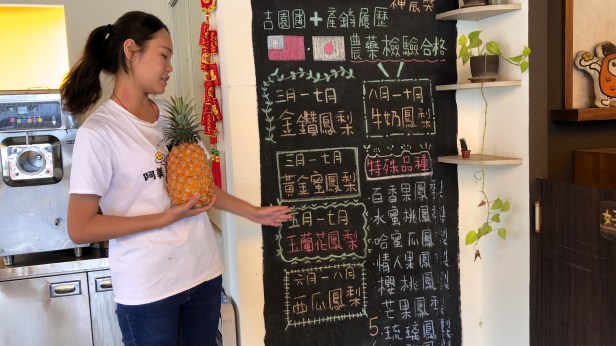 神農獎
吉園圃+產銷履歷
農藥檢驗合格
三月-七月
金鑽鳳梨
八月-十月
牛奶鳳梨
三月-七月
黃金蜜鳳梨
五月-七月
玉蘭花鳳梨
六月-八月
西瓜鳳梨
特殊品種
百香果鳳梨
水蜜桃鳳梨
哈蜜瓜鳳
情人果鳳
櫻桃鳳
芒果鳳
5.琉璃鳳
阿美